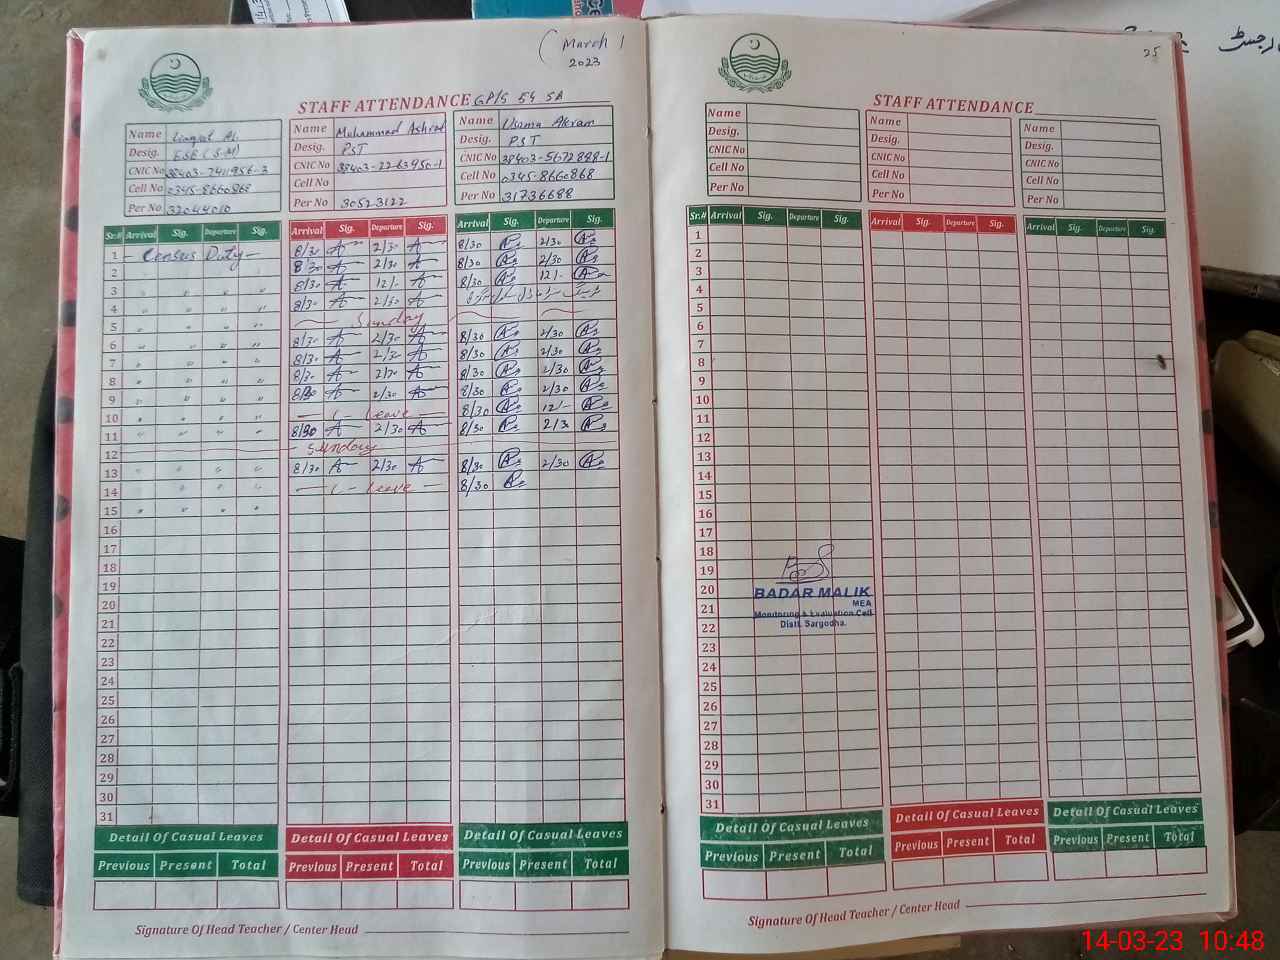 (March 1
2023
STAFF ATTENDANCE GP/S 54 SA
Name Liaqat Ali
Desig. ESE (S-M)
CNIC No 38403-7411956-3
Cell No 0345-8660868
Per No 32044010
Name Muhammad Ashraf
Desig. PST
CNIC No 38403-2263950-1
Cell No
Per No 30523122
Name Usama Akram
Desig. PST
CNIC No 38403-5672888-1
Cell No 0345-8660868
Per No 31736688
Sr.# Arrival Sig. Departure Sig. Arrival Sig. Departure Sig. Arrival Sig. Departure Sig.
1 - Census Duty - 8/30 2/30 8/30 2/30
2 8/30 2/30 8/30 2/30
3 " " " " 8/30 12/- 8/30 12/-
4 " " " " 8/30 2/30
5 " " " " Sunday
6 " " " " 8/30 2/30 8/30 2/30
7 " " " " 8/30 2/30 8/30 2/30
8 " " " " 8/30 2/30 8/30 2/30
9 " " " " 8/30 2/30 8/30 2/30
10 " " " " - C - Leave - 8/30 12/-
11 " " " " 8/30 2/30 8/30 2/30
12 Sunday
13 " " " " 8/30 2/30 8/30 2/30
14 " " " " - C - Leave - 8/30
15 " " " "
16
17
18
19
20
21
22
23
24
25
26
27
28
29
30
31
Detail Of Casual Leaves Detail Of Casual Leaves Detail Of Casual Leaves
Previous Present Total Previous Present Total Previous Present Total
Signature Of Head Teacher / Center Head
25
STAFF ATTENDANCE
Name
Desig.
CNIC No
Cell No
Per No
Name
Desig.
CNIC No
Cell No
Per No
Name
Desig.
CNIC No
Cell No
Per No
Sr.# Arrival Sig. Departure Sig. Arrival Sig. Departure Sig. Arrival Sig. Departure Sig.
1
2
3
4
5
6
7
8
9
10
11
12
13
14
15
16
17
18
19
20
21
22
23
24
25
26
27
28
29
30
31
BADAR MALIK
MEA
Monitoring & Evaluation Cell
Distt. Sargodha.
Detail Of Casual Leaves Detail Of Casual Leaves Detail Of Casual Leaves
Previous Present Total Previous Present Total Previous Present Total
Signature Of Head Teacher / Center Head
14-03-23 10:48